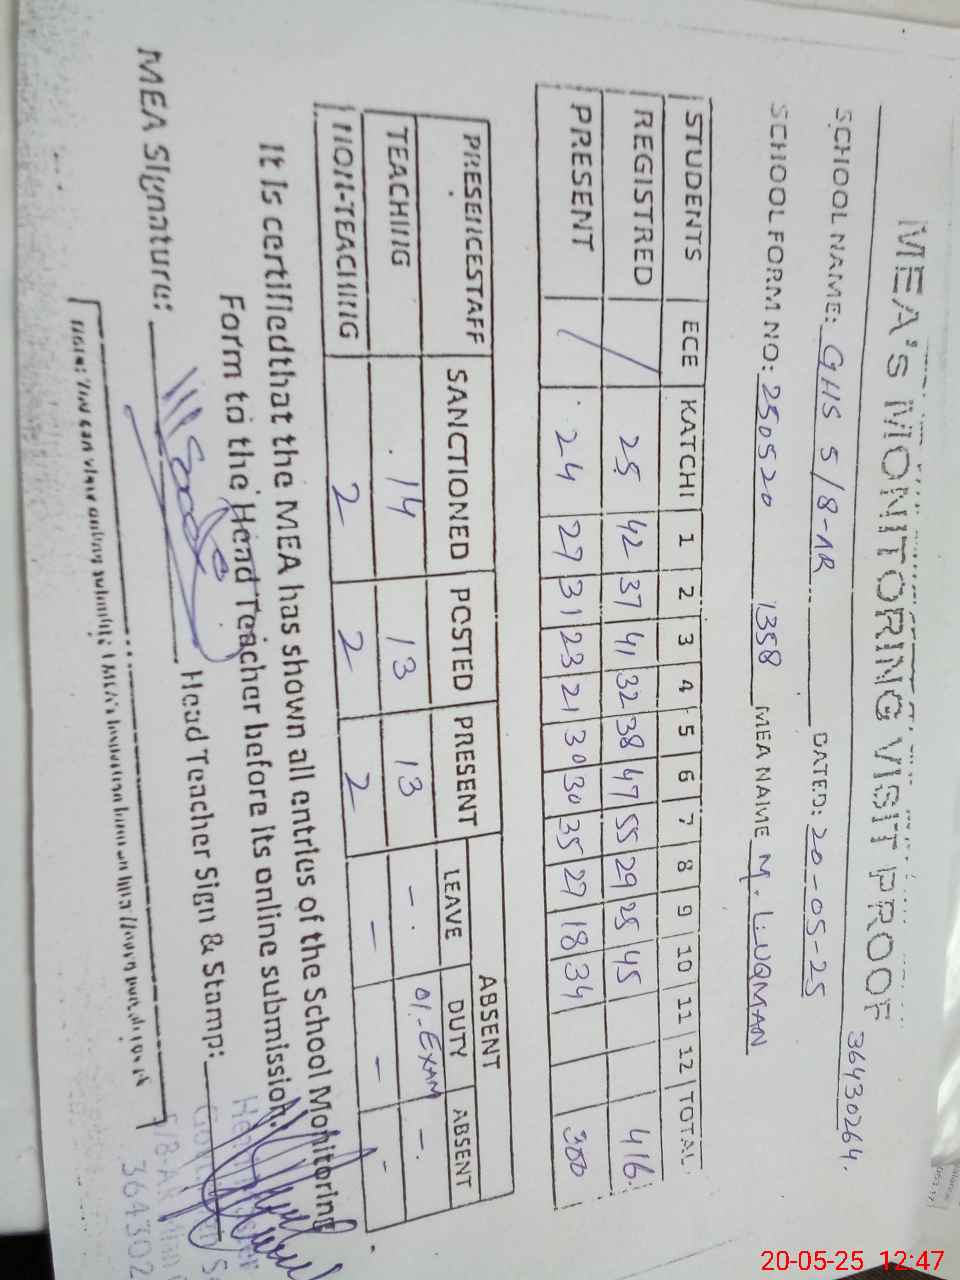 MEA's MONITORING VISIT PROOF
36430264.
SCHOOL NAME: GHS 5/8-AR DATED: 20-05-25
SCHOOL FORM NO: 250520 1358 MEA NAME M. LUQMAN
STUDENTS ECE KATCHI 1 2 3 4 5 6 7 8 9 10 11 12 TOTAL
REGISTRED / 25 42 37 41 32 38 47 55 29 25 45 416
PRESENT / 24 27 31 23 21 30 30 35 27 18 34 300
PRESENCESTAFF SANCTIONED POSTED PRESENT ABSENT
LEAVE DUTY ABSENT
TEACHING 14 13 13 - 01-EXAM -
NON-TEACHING 2 2 2 - - -
It is certifiedthat the MEA has shown all entries of the School Monitoring
Form to the Head Teacher before its online submission.
MEA Signature: Head Teacher Sign & Stamp:
Head
5/8-AR
364302
20-05-25 12:47